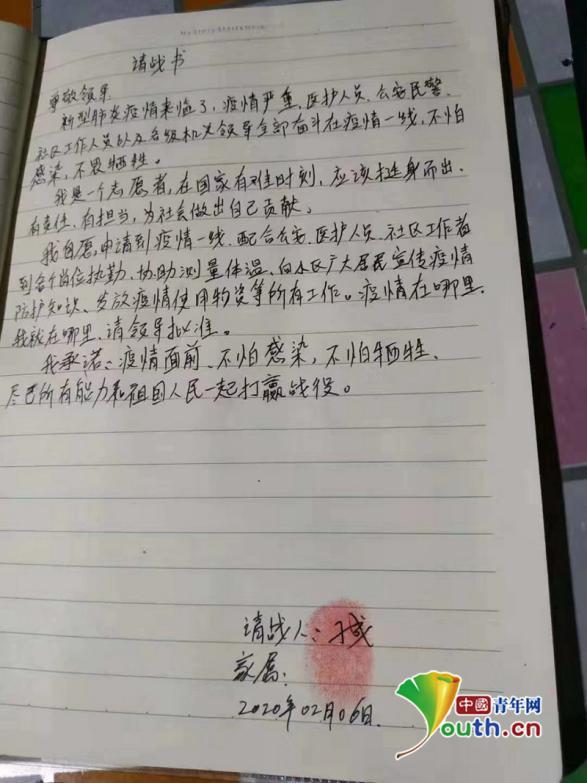 请战书
尊敬领导
新型肺炎疫情来临了，疫情严重，医护人员、公安民警、
社区工作人员以及各级机关领导全部奋斗在疫情一线，不怕
感染，不畏牺牲。
我是一个志愿者，在国家有难时刻，应该挺身而出、
有责任、有担当，为社会做出自己贡献。
我自愿申请到疫情一线，配合公安、医护人员、社区工作者
到各个岗位执勤、协助测量体温、向水区广大居民宣传疫情
防护知识、发放疫情使用物资等所有工作。疫情在哪里，
我就在哪里，请领导批准。
我承诺：疫情面前，不怕感染，不怕牺牲，
尽己所有能力和祖国人民一起打赢战役。
请战人：
家属：
2020年02月06日.
中國青年网
Youth.cn